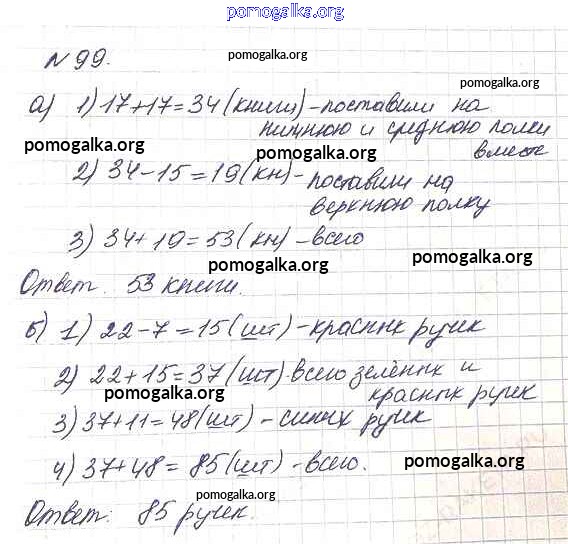 pomogalka.org
№ 99.
pomogalka.org
pomogalka.org
а) 1) 17+17=34 (книги) - поставили на
нижнюю и среднюю полки
pomogalka.org
pomogalka.org
вместе
2) 34-15=19 (кн) - поставили на
верхнюю полку
3) 34+19=53 (кн) - всего
pomogalka.org
pomogalka.org
Ответ. 53 книги.
б) 1) 22-7=15 (шт) - красных ручек
2) 22+15=37 (шт) - всего зелёных и
красных ручек
pomogalka.org
3) 37+11=48 (шт) - синих ручек
4) 37+48=85 (шт) - всего.
pomogalka.org
pomogalka.org
Ответ: 85 ручек.
pomogalka.org